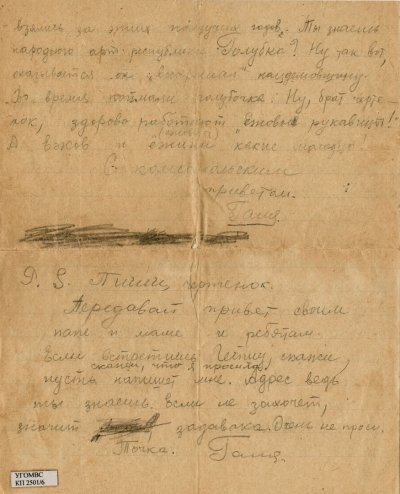 взялись за этих ползучих гадов. Ты знаешь
народного арт. республики Голубка? Ну так вот,
оказывается он "вскормил" нацдемовщину.
Во время поймали голубочка. Ну, брат черте-
нок, здорово работают "ежовые рукавицы!"
А ежов и какие молодцы!
С комсомольским
приветом.
Галя.
P. S. Пиши, чертенок.
Передавай привет своим
папе и маме и ребятам.
Если встретишь скажи,
скажи, что я просила
пусть напишет мне. Адрес ведь
ты знаешь. Если не захочет,
значит задавака. Очень не проси.
Точка. Галя.
УГОМВС
КП 2501/6